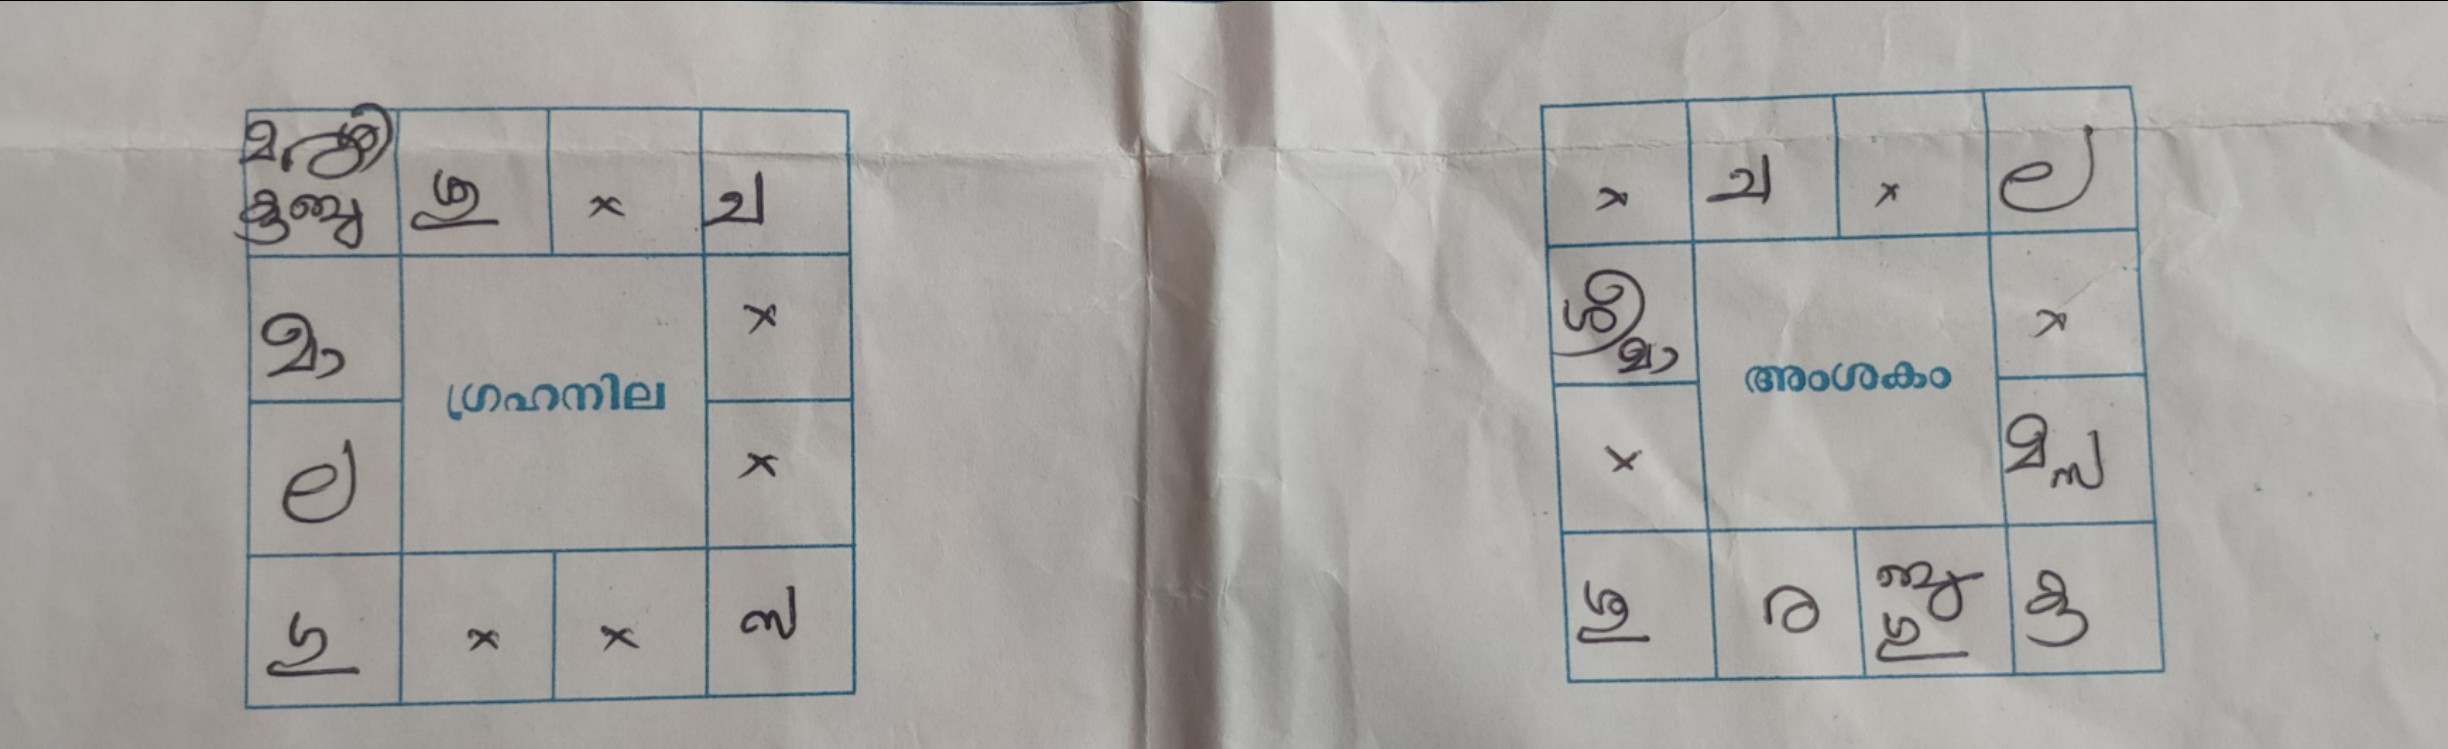 മ ര ശി
കു ബു
ശു
×
ച
മാ
×
ഗ്രഹനില
ല
×
ഗു
×
×
സ
×
ച
×
ല
ശി
മാ
×
അംശകം
×
മ സ
ശു
ര
ബു
ഗു
കു